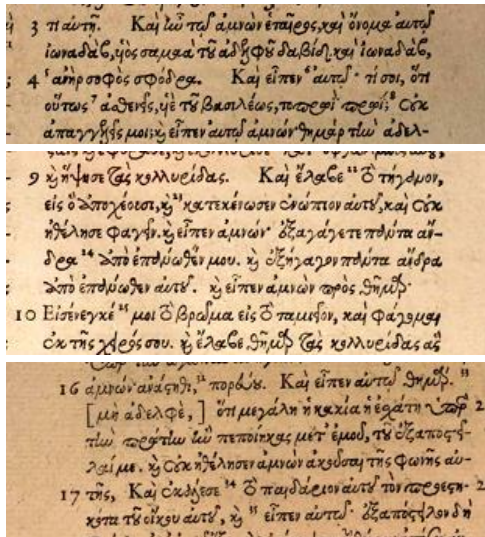 3 τι αὐτῇ. Καὶ ἦν τῷ ἀμνὼν ἑταῖρος, καὶ ὄνομα αὐτῷ
ἰωναδὰβ, υἱὸς σαμαὰ τοῦ ἀδελφοῦ δαβίδ. καὶ ἰωναδὰβ,
4 ἀνὴρ σοφὸς σφόδρα. Καὶ εἶπεν αὐτῷ· τί σοι, ὅτι
οὕτως 7 ἀσθενὴς, υἱὲ τοῦ βασιλέως, τοπρωὶ πρωί; 8 Οὐκ
ἀπαγγελεῖς μοι; καὶ εἶπεν αὐτῷ ἀμνών· θημὰρ τὴν ἀδελ-
9 καὶ ἥψησε τὰς κολλυρίδας. Καὶ ἔλαβε 12 τὸ τήγανον,
εἰς ὃ ἀποχέουσι, καὶ 13 κατεκένωσεν ἐνώπιον αὐτοῦ, καὶ οὐκ
ἠθέλησε φαγεῖν. καὶ εἶπεν ἀμνών· ἐξαγάγετε πάντα ἄν-
δρα 14 ἀπὸ ἐπάνωθέν μου. καὶ ἐξήγαγον πάντα ἄνδρα
ἀπὸ ἐπάνωθεν αὐτοῦ. καὶ εἶπεν ἀμνὼν πρὸς θημάρ·
10 Εἰσένεγκέ 15 μοι τὸ βρῶμα εἰς τὸ ταμιεῖον, καὶ φάγομαι
ἐκ τῆς χειρός σου. καὶ ἔλαβε θημὰρ τὰς κολλυρίδας ἃς
16 ἀμνών· ἀνάστηθι, 12 πορεύου. Καὶ εἶπεν αὐτῷ θημάρ. 13
[μὴ ἀδελφέ,] ὅτι μεγάλη ἡ κακία ἡ ἐσχάτη ὑπὲρ 2
τὴν πρώτην ἣν πεποίηκας μετ᾽ ἐμοῦ, τοῦ ἐξαποστεῖ-
λαί με. καὶ οὐκ ἠθέλησεν ἀμνὼν ἀκοῦσαι τῆς φωνῆς αὐ-
17 τῆς, Καὶ ἐκάλεσε 14 τὸ παιδάριον αὐτοῦ τὸν προεστη- 2
κότα τοῦ οἴκου αὐτοῦ, καὶ 15 εἶπεν αὐτῷ· ἐξαπόστειλον δὴ